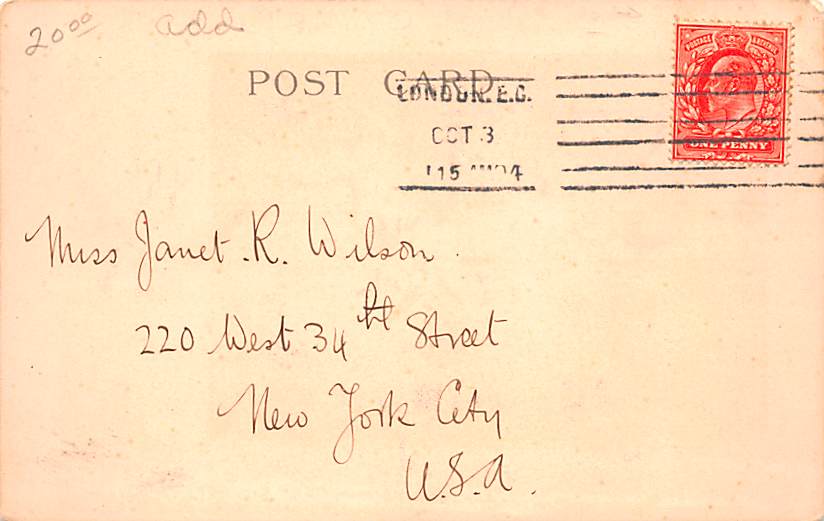 20.00 add
POST CARD
LONDON. E.C.
OCT 3
1 15 AM 04
POSTAGE REVENUE
ONE PENNY
Miss Janet. R. Wilson.
220 West 34th Street
New York City
U.S.A.